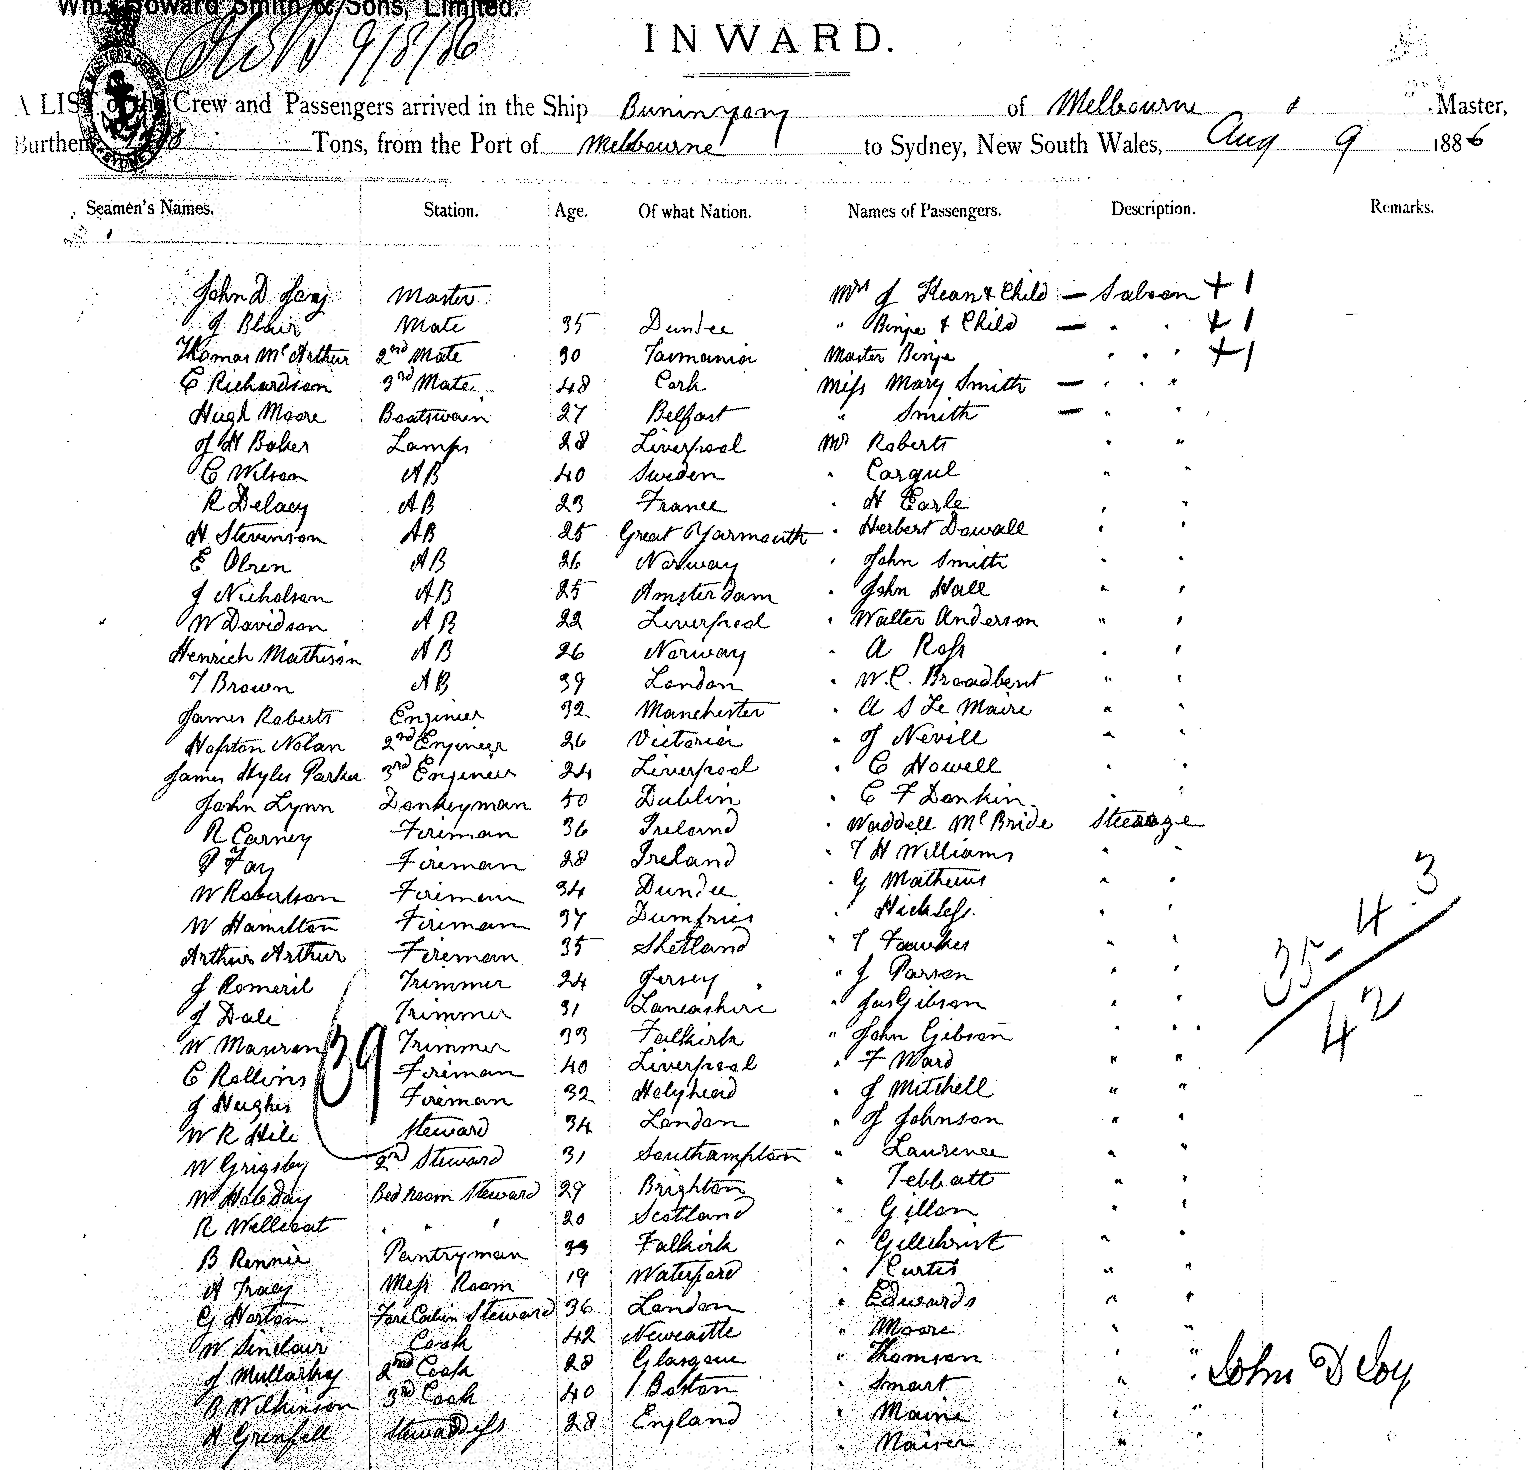 Wm. Howard Smith & Sons, Limited.
9/8/86
INWARD.
A LIST of the Crew and Passengers arrived in the Ship Buninyong of Melbourne Master,
Burthen Tons, from the Port of Melbourne to Sydney, New South Wales, Aug 9 1886
Seamen's Names. Station. Age. Of what Nation. Names of Passengers. Description. Remarks.
John D Master Mrs J Kean & Child — Saloon + 1
J Blair Mate 35 Dundee " Binge & Child — " " + 1
Thomas McArthur 2nd Mate 30 Tasmania Master Binge " " " + 1
C Richardson 3rd Mate 48 Cork Miss Mary Smith — " "
Hugh Moore Boatswain 27 Belfast " Smith — " "
J H Baker Lamps 28 Liverpool Mr Roberts " "
C Wilson AB 40 Sweden " Cargul " "
R Delacy AB 23 France " H Earle " "
H Stevenson AB 25 Great Yarmouth " Herbert Dowall " "
E Olsen AB 26 Norway " John Smith " "
J Nicholson AB 25 Amsterdam " John Hall " "
W Davidson AB 22 Liverpool " Walter Anderson " "
Henrich Mathison AB 26 Norway " A Ross " "
T Brown AB 39 London " W. C. Broadbent " "
James Roberts Engineer 32 Manchester " A S Le Maire " "
Hopton Nolan 2nd Engineer 26 Victoria " J Nevill " "
James Hyles Parker 3rd Engineer 24 Liverpool " C Howell " "
John Lynn Donkeyman 50 Dublin " C F Dankin " "
R Carney Fireman 36 Ireland " Waddell McBride Steerage
P Fay Fireman 28 Ireland " T H Williams " "
W Robertson Fireman 34 Dundee " G Mathews " "
W Hamilton Fireman 37 Dumfries " " "
Arthur Arthur Fireman 35 Shetland " T Fawkes " "
J Romeril Trimmer 24 Jersey " J Parson " "
J Dale Trimmer 31 Lancashire " Jas Gibson " "
W Mauran Trimmer 33 Falkirk " John Gibson " "
C Rollins Fireman 40 Liverpool " F Ward " "
J Hughes Fireman 32 Holyhead " J Mitchell " "
W R Hile Steward 34 London " J Johnson " "
W Grigsby 2nd Steward 31 Southampton " Laurence " "
W Holeday Bed Room Steward 29 Brighton " Tebbatt " "
R Wellcoat " " " 20 Scotland " Gillon " "
B Rennie Pantryman 33 Falkirk " Gilchrist " "
A Tracy Mess Room 19 Waterford " Curtis " "
G Horton Fore Cabin Steward 36 London " Edwards " "
W Sinclair Cook 42 Newcastle " Moore " "
J Mullarky 2nd Cook 28 Glasgow " Thomson " "
B Wilkinson 3rd Cook 40 Boston " Smart " "
A Grenfell Stewardess 28 England " Maine " "
" Maiser " "
39
35 - 4 . 3
42
John D Joy